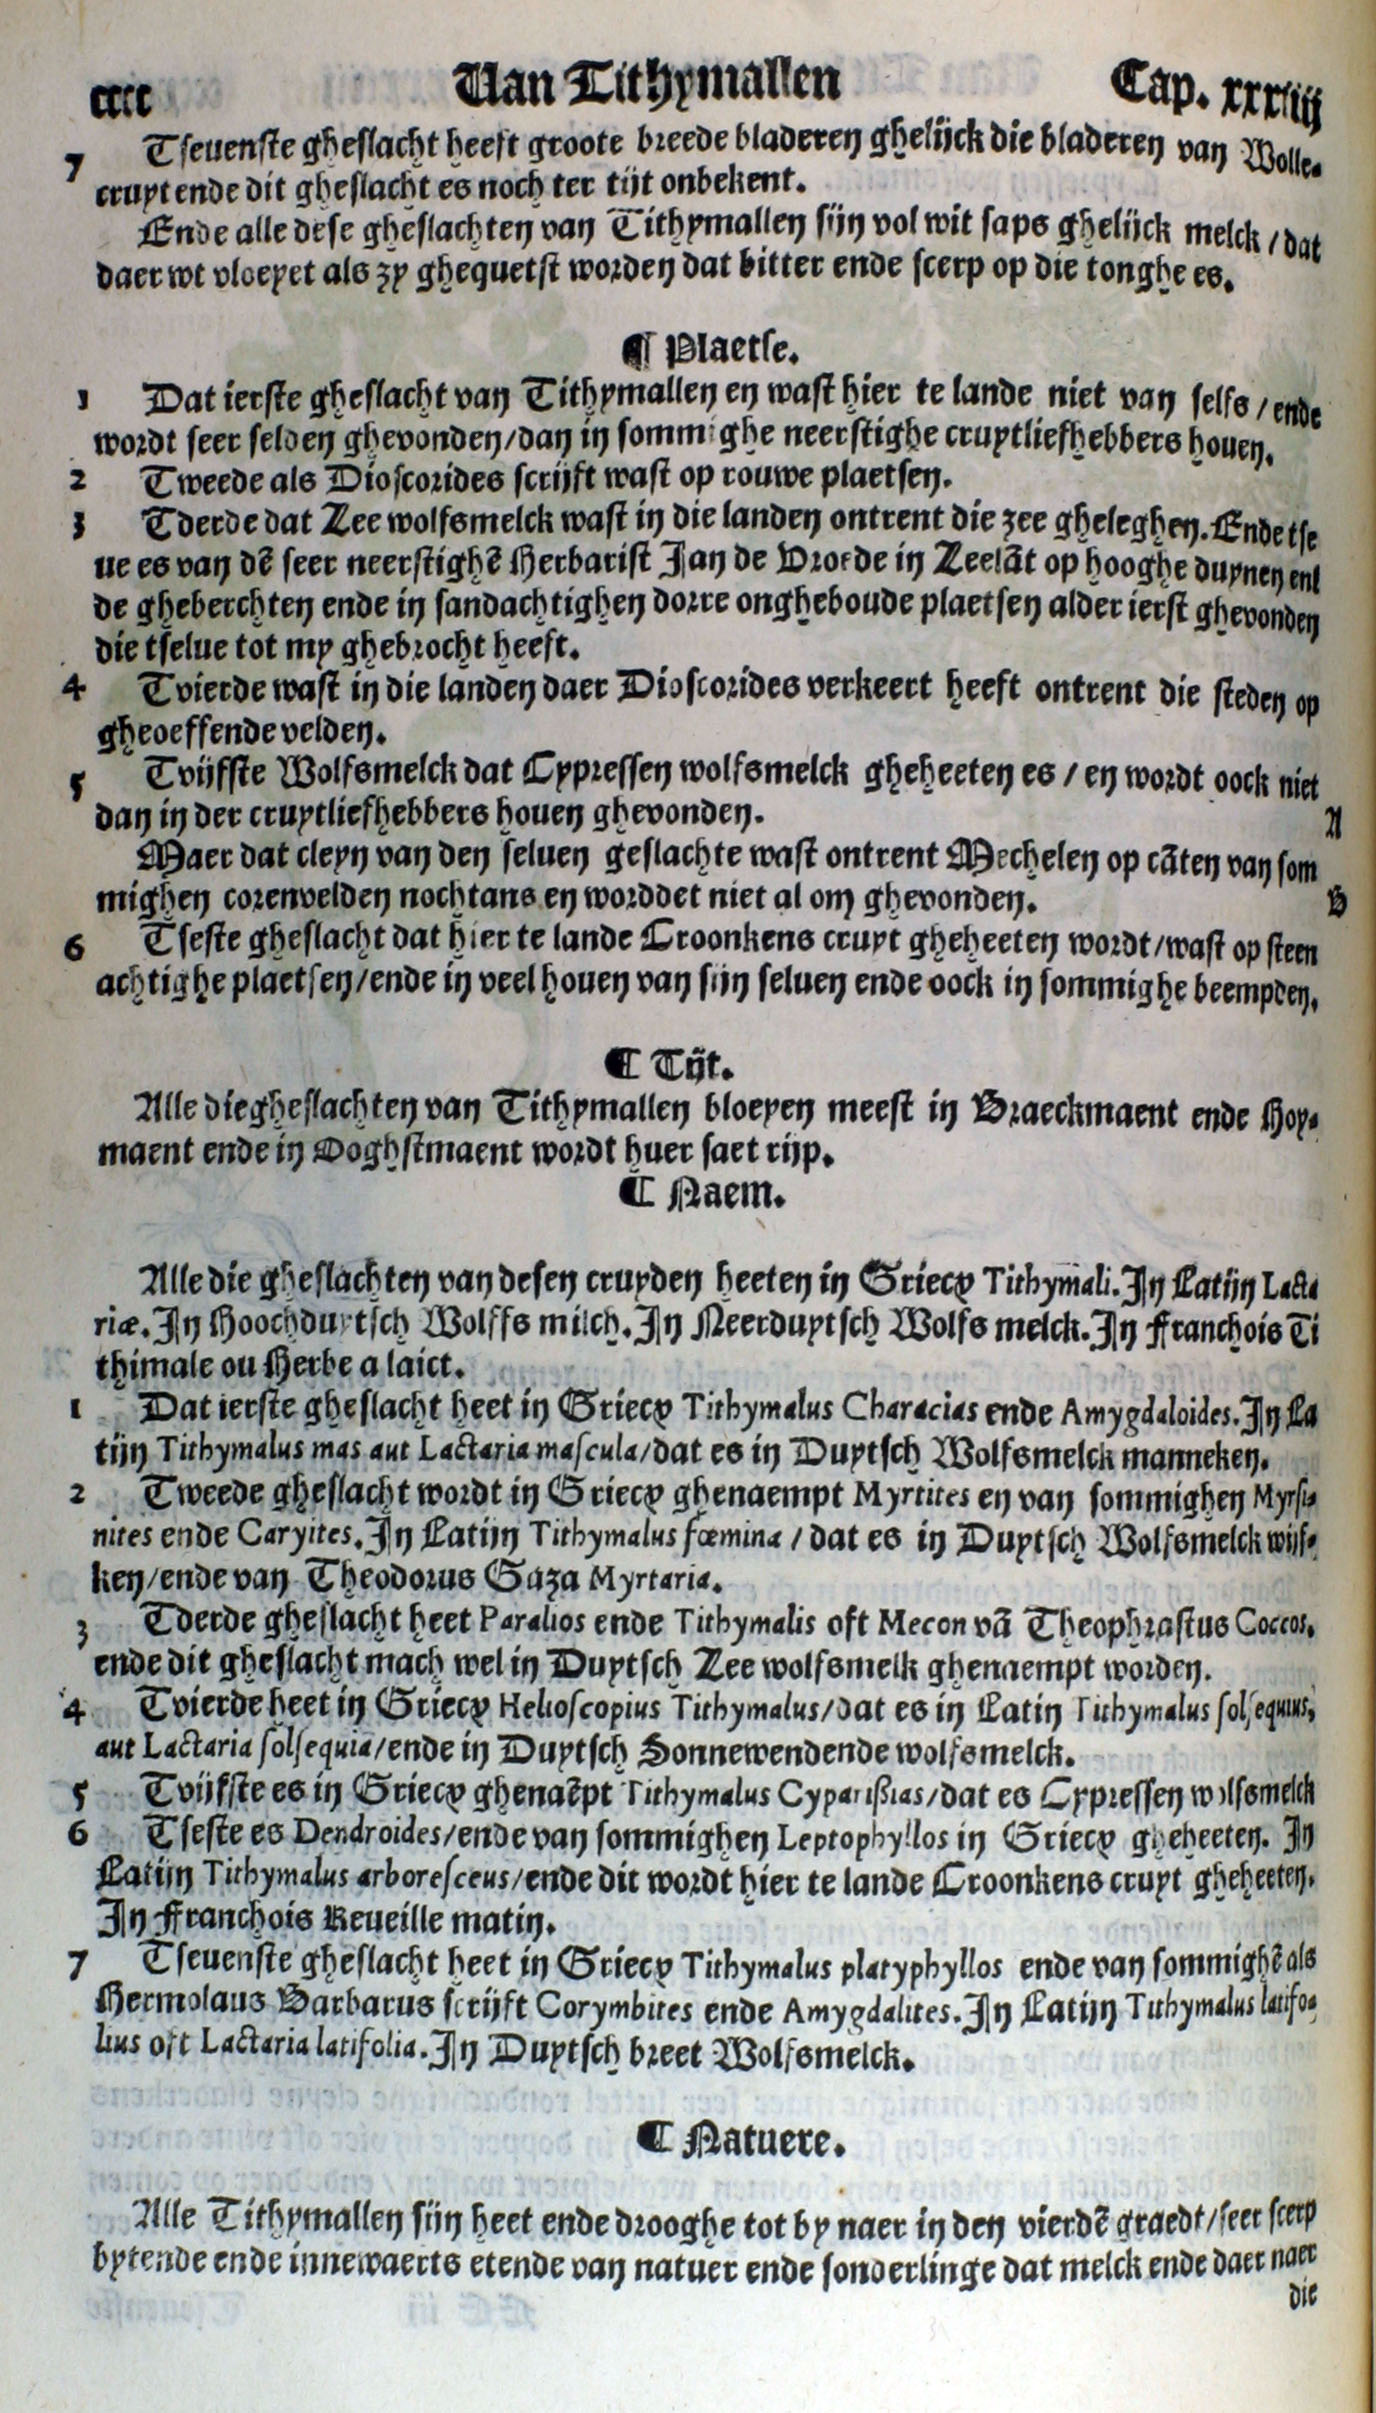 cccc Van Tithymallen Cap. xxxiiij
7 Tseuenste gheslacht heeft groote breede bladeren ghelijck die bladeren van Wolle-
cruyt ende dit gheslacht es noch ter tijt onbekent.
Ende alle dese gheslachten van Tithymallen sijn vol wit saps ghelijck melck / dat
daer wt vloeyet als zy ghequetst worden dat bitter ende scerp op die tonghe es.
¶ Plaetse.
1 Dat ierste gheslacht van Tithymallen en wast hier te lande niet van selfs / ende
wordt seer selden ghevonden/dan in sommighe neerstighe cruytliefhebbers houen.
2 Tweede als Dioscorides scrijft wast op rouwe plaetsen.
3 Tderde dat Zee wolfsmelck wast in die landen ontrent die zee gheleghen. Ende tse
ue es van dē seer neerstighē Herbarist Jan de Vroede in Zeelāt op hooghe duynen enl
de gheberchten ende in sandachtighen dorre ongheboude plaetsen alder ierst ghevonden
die tselue tot my ghebrocht heeft.
4 Tvierde wast in die landen daer Dioscorides verkeert heeft ontrent die steden op
gheoeffende velden.
5 Tvijfste Wolfsmelck dat Cypressen wolfsmelck gheheeten es / en wordt oock niet
dan in der cruytliefhebbers houen ghevonden.
A
Maer dat cleyn van den seluen geslachte wast ontrent Mechelen op cāten van som
mighen corenvelden nochtans en worddet niet al om ghevonden.
B
6 Tseste gheslacht dat hier te lande Croonkens cruyt gheheeten wordt/wast op steen
achtighe plaetsen/ende in veel houen van sijn seluen ende oock in sommighe beempden.
¶ Tijt.
Alle die gheslachten van Tithymallen bloeyen meest in Braeckmaent ende Hoy-
maent ende in Ooghstmaent wordt huer saet rijp.
¶ Naem.
Alle die gheslachten van desen cruyden heeten in Griecx Tithymali. In Latijn Lacta
riæ. In Hoochduytsch Wolffs milch. In Neerduytsch Wolfs melck. In Franchois Ti
thimale ou Herbe a laict.
1 Dat ierste gheslacht heet in Griecx Tithymalus Characias ende Amygdaloides. In La
tijn Tithymalus mas aut Lactaria mascula/dat es in Duytsch Wolfsmelck manneken.
2 Tweede gheslacht wordt in Griecx ghenaempt Myrtites en van sommighen Myrsi-
nites ende Caryites. In Latijn Tithymalus fœmina / dat es in Duytsch Wolfsmelck wijf-
ken/ende van Theodorus Gaza Myrtaria.
3 Tderde gheslacht heet Paralios ende Tithymalis oft Mecon vā Theophrastus Coccos.
ende dit gheslacht mach wel in Duytsch Zee wolfsmelk ghenaempt worden.
4 Tvierde heet in Griecx Helioscopius Tithymalus/dat es in Latin Tithymalus solsequius,
aut Lactaria solsequia/ende in Duytsch Sonnewendende wolfsmelck.
5 Tvijfste es in Griecx ghenaēpt Tithymalus Cyparißias/dat es Cypressen wolfsmelck
6 Tseste es Dendroides/ende van sommighen Leptophyllos in Griecx gheheeten. In
Latijn Tithymalus arboresceus/ende dit wordt hier te lande Croonkens cruyt gheheeten.
In Franchois Reueille matin.
7 Tseuenste gheslacht heet in Griecx Tithymalus platyphyllos ende van sommighē als
Hermolaus Barbarus scrijft Corymbites ende Amygdalites. In Latijn Tithymalus latifo-
lius oft Lactaria latifolia. In Duytsch breet Wolfsmelck.
¶ Natuere.
Alle Tithymallen sijn heet ende drooghe tot by naer in den vierdē graedt/seer scerp
bytende ende innewaerts etende van natuer ende sonderlinge dat melck ende daer naer
die